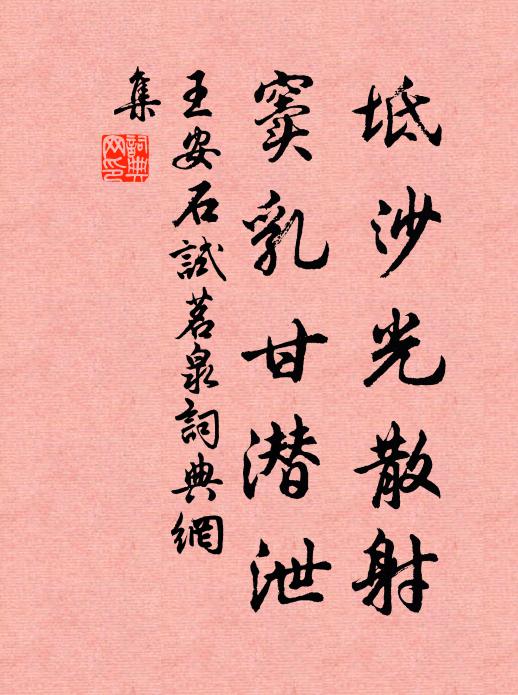 坻沙光散射
窦乳甘潜泄
王安石試茗泉詞典網
集
詞典
网印